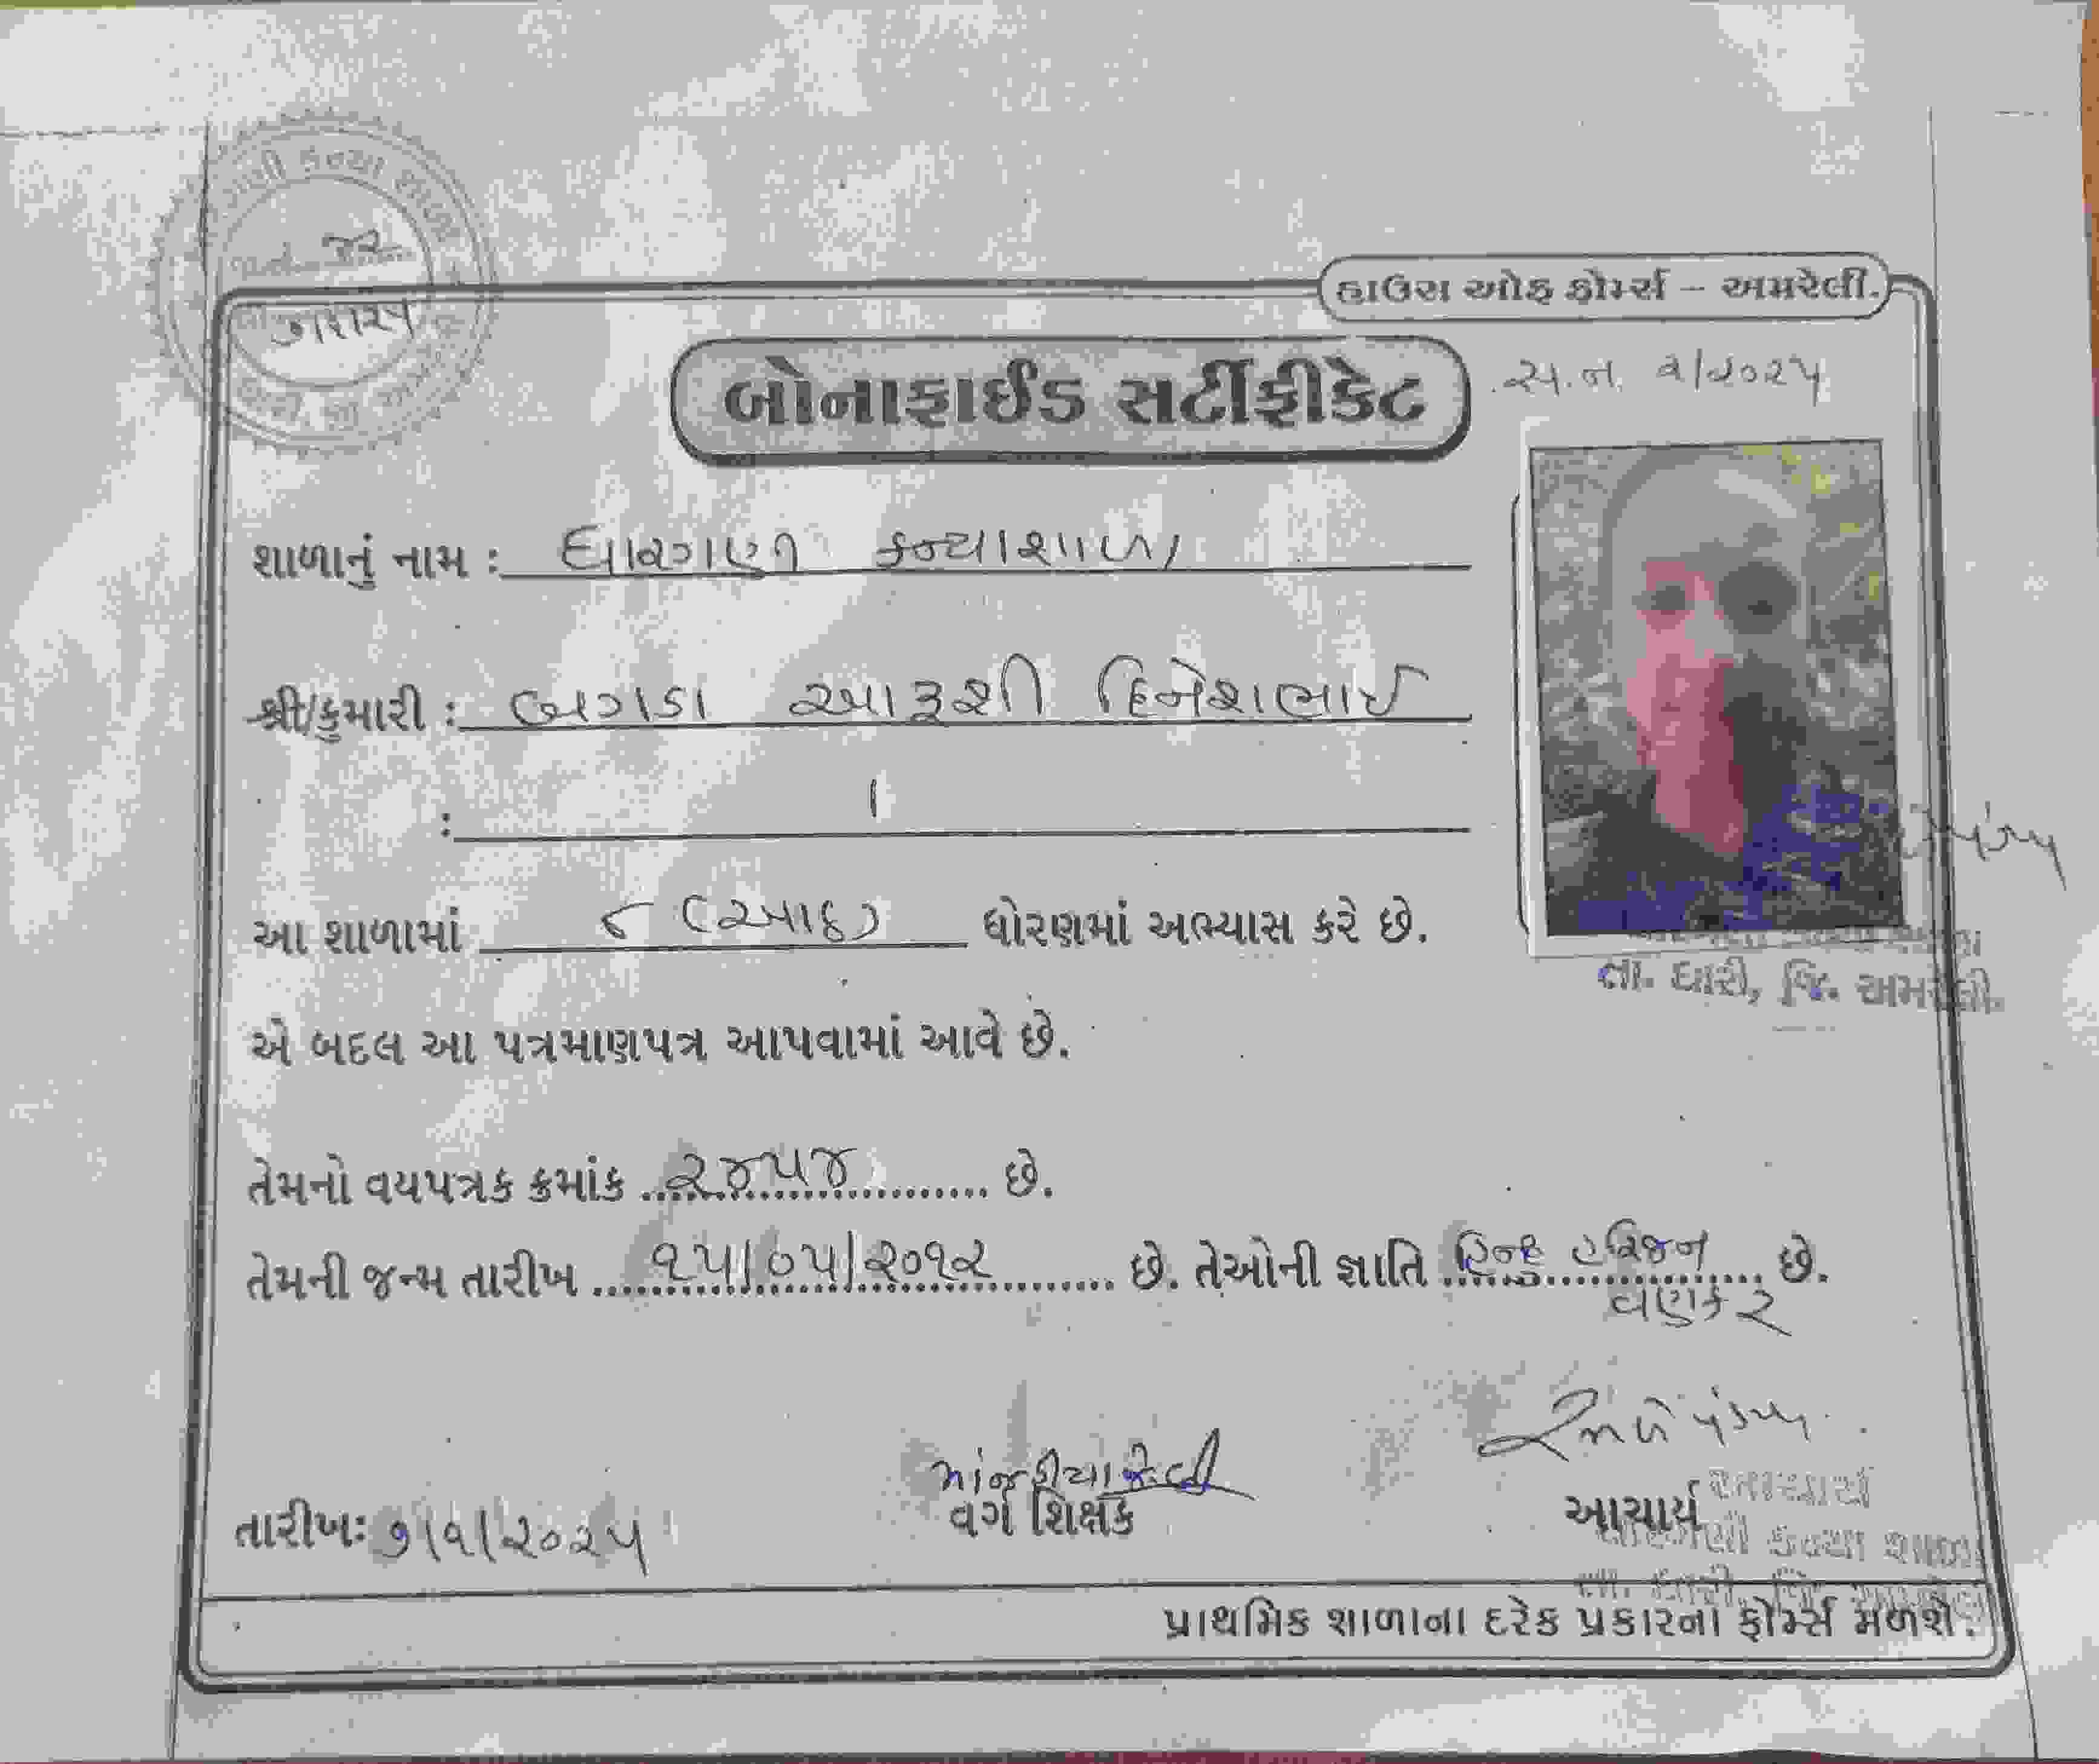 કન્યા
જર
૭/૧/૨૫
હાઉસ ઓફ ફોર્મ્સ – અમરેલી.
બોનાફાઈડ સર્ટીફીકેટ
૨/૨૦૨૫
શાળાનું નામ : ધારગણી કન્યાશાળા
શ્રી/કુમારી : બગડા આરૂશી દિનેશભાઈ
:
આ શાળામાં ૮ (આઠ) ધોરણમાં અભ્યાસ કરે છે.
તા. ધારી, જિ. અમરેલી.
એ બદલ આ પત્રમાણપત્ર આપવામાં આવે છે.
તેમનો વયપત્રક ક્રમાંક ૨૪૫૪ છે.
તેમની જન્મ તારીખ ૧૫/૦૫/૨૦૧૨ છે. તેઓની જ્ઞાતિ હિન્દુ હરિજન છે.
વણકર
તારીખઃ ૭/૧/૨૦૨૫
વર્ગ શિક્ષક
આચાર્ય
આચાર્ય
ધારગણી કન્યા શાળા
પ્રાથમિક શાળાના દરેક પ્રકારના ફોર્મ્સ મળશે.